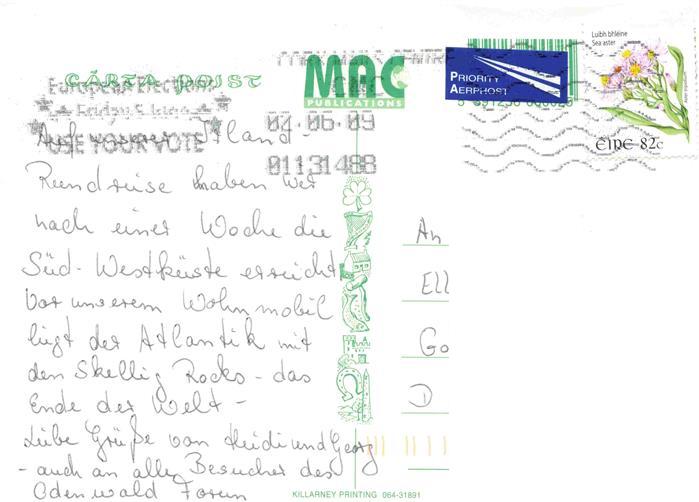 CÁRTA POIST
MAC
PUBLICATIONS
PRIORITY
AERPHOST
Luibh bhléine
Sea aster
ÉIRE 82c
European Elections
Friday 5 June
USE YOUR VOTE
04.06.09
01131488
Auf unserer Irland
Rundreise haben wir
nach einer Woche die
Süd-Westküste erreicht
Vor unserem Wohnmobil
liegt der Atlantik mit
den Skellig Rocks - das
Ende der Welt -
Liebe Grüße von Heidi und Georg
- auch an alle Besucher des
Odenwald Forum
An
Ell
Go
D
KILLARNEY PRINTING 064-31891